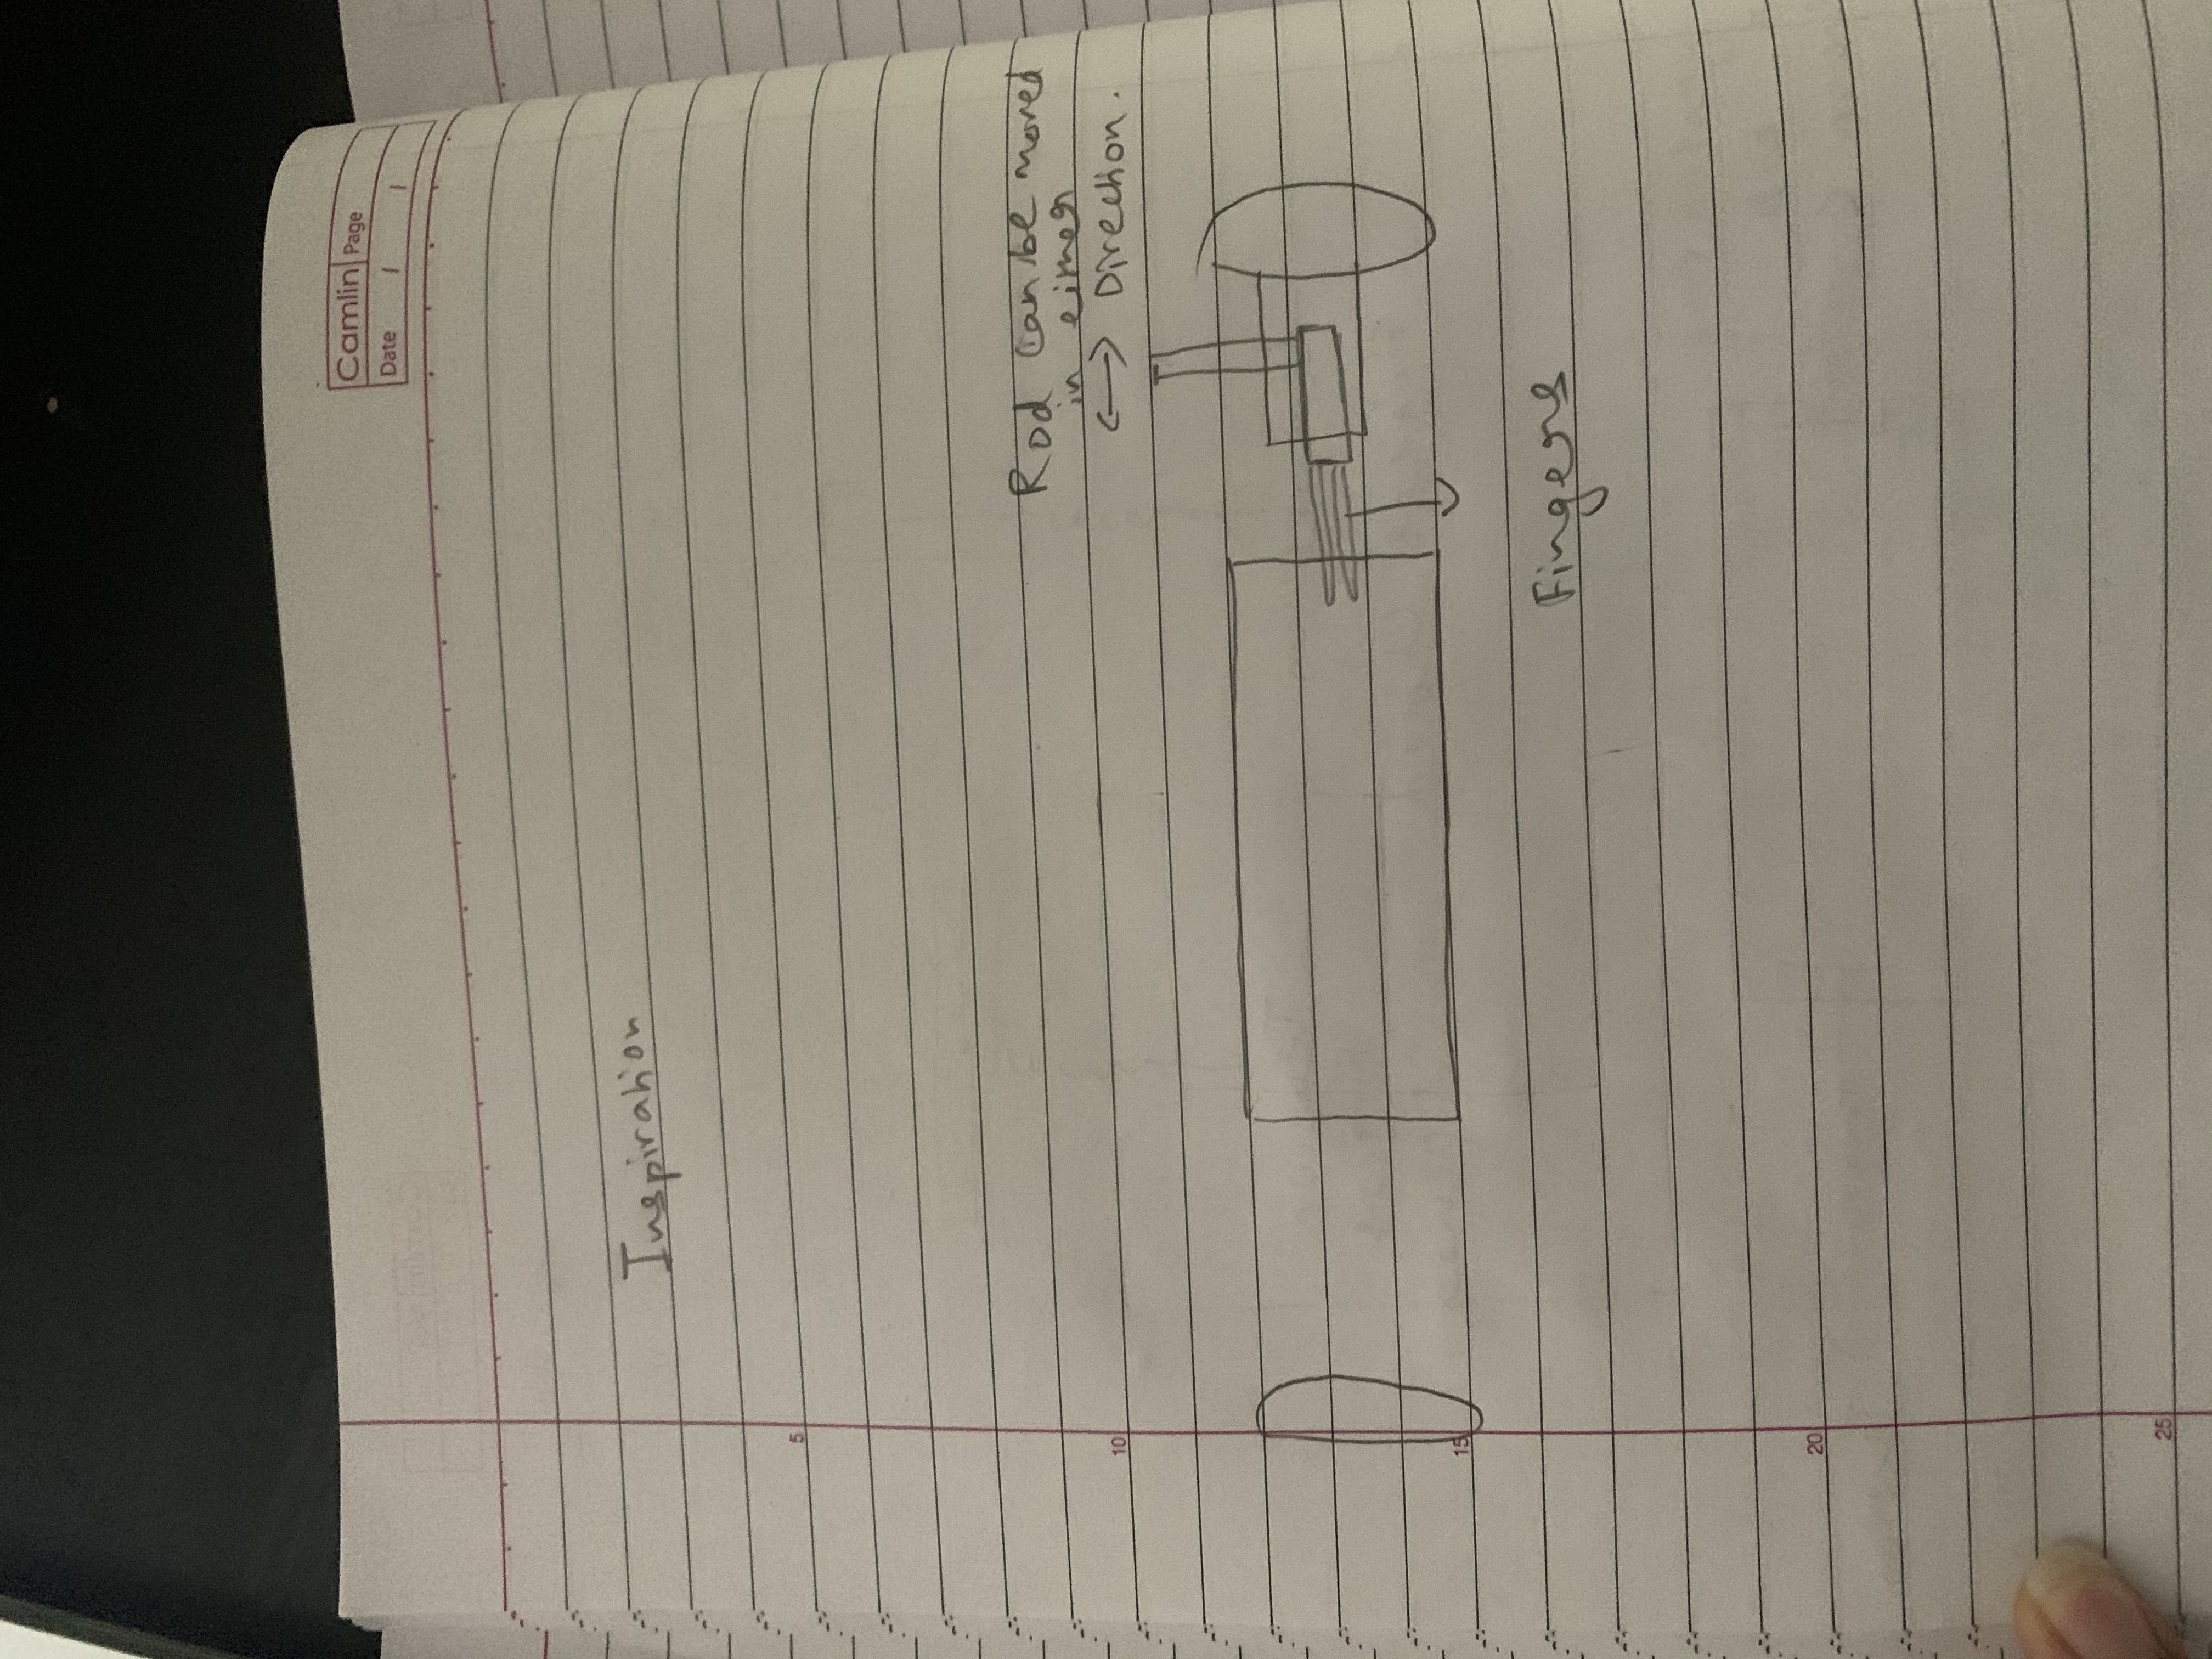 Camlin Page
Date / /
Inspiration
Rod can be moved
in either
<-> Direction.
Fingers
5
10
15
20
25